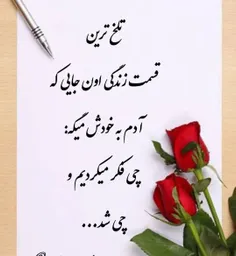 تلخ ترین
قسمت زندگی اون جایی که
آدم به خودش میگه:
چی فکر میکردیم و
چی شد...